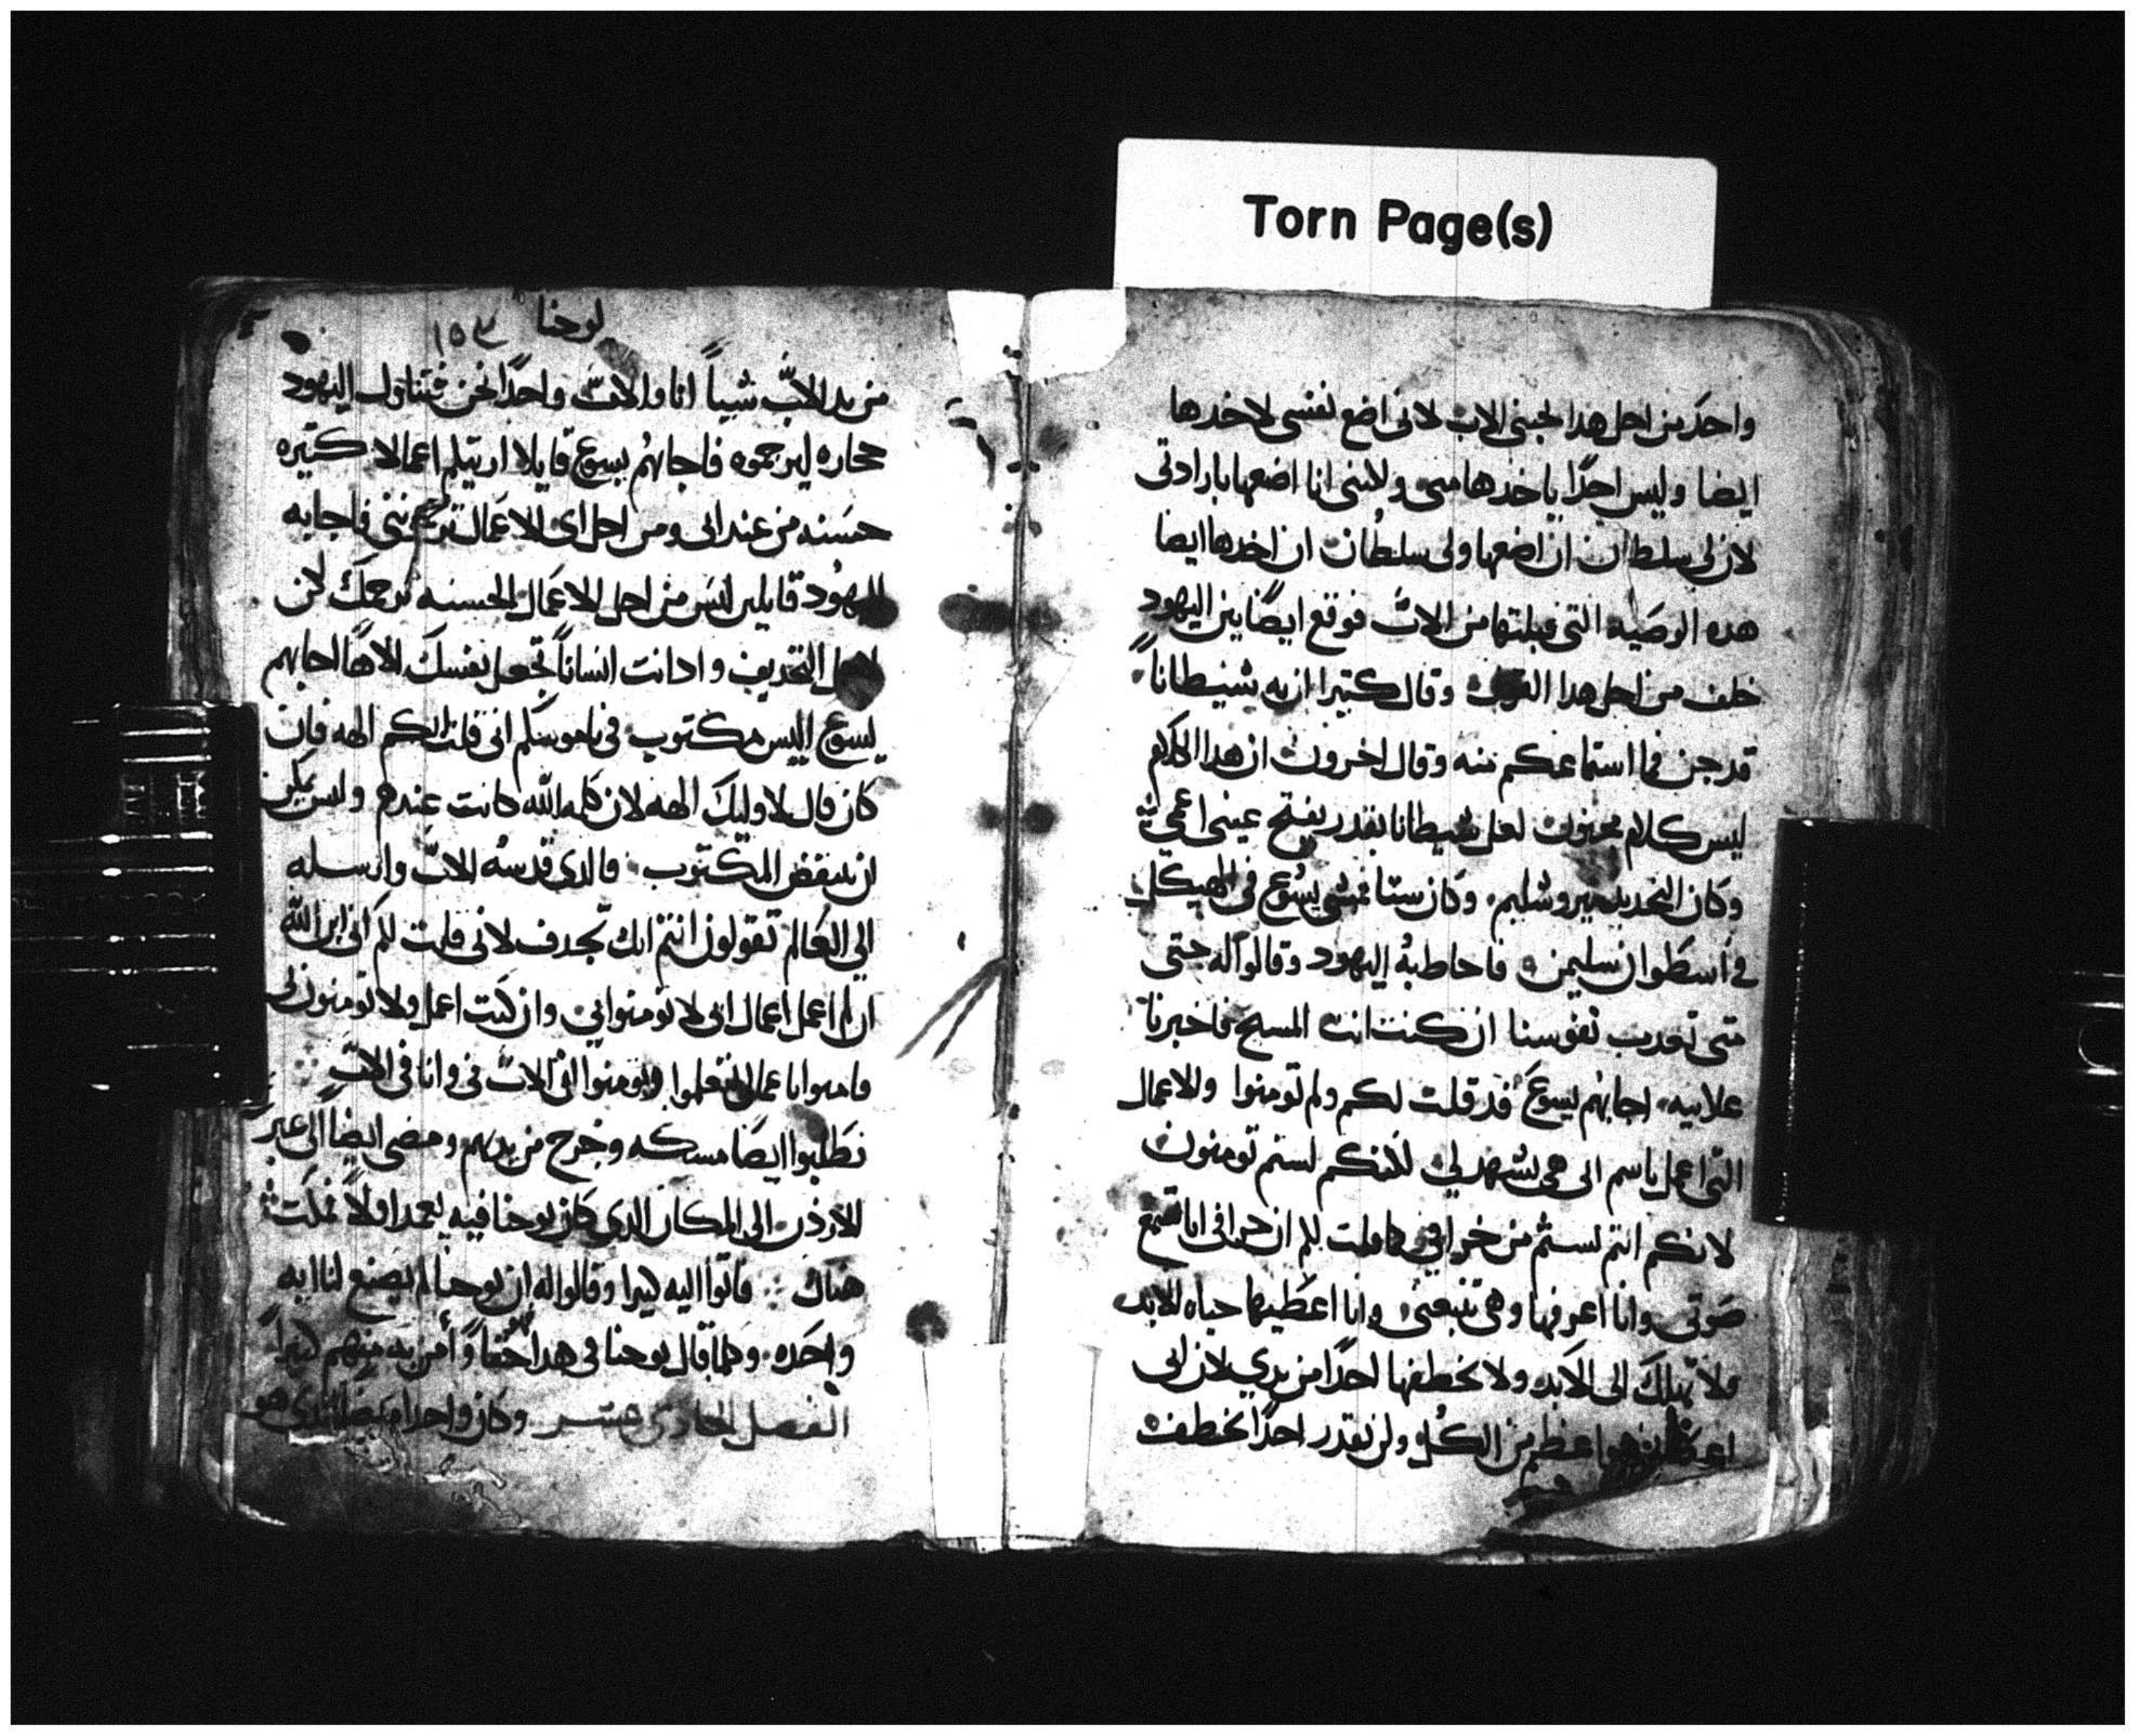 Torn Page(s)
واحده من اجل هدا يحبني الاب لاني اضع نفسي لاخدها
ايضا وليس احدًا ياخدها مني ولكنني انا اضعها بارادتي
لان لي سلطان ان اضعها ولي سلطان ان اخدها ايضا
هده الوصيه التي قبلتها من الاب فوقع ايضًا بين اليهود
خلف من اجل هدا القول وقال كتيرا ان به شيطانًا
قد جن فما استماعكم منه وقال اخرون ان هدا الكلام
ليس كلام مجنون لعل شيطانا يقدر يفتح عيني اعمي
وكان التجديد بيروشليم وكان ستا يمشي يسوع في الهيكل
في اسطوان سليمن فاحاط به اليهود وقالوا له حتي
متي تعدب نفوسنا ان كنت انت المسيح فاخبرنا
علانيه اجابهم يسوع قد قلت لكم ولم تومنوا والاعمال
التي اعمل باسم ابي هي تشهد لي لكنكم لستم تومنون
لانكم انتم لستم من خرافي كما قلت لكم ان خرافي انا تسمع
صوتي وانا اعرفها وهي تتبعني وانا اعطيها حياه الابد
ولا تهلك الي الابد ولا يخطفها احدًا من يدي لان ابي
هو اعظم من الكل ولن يقدر احدًا يخطف
يوحنا ١٥٣
من يد الاب شيياً انا والاب واحدًا نحن فتناول اليهود
حجاره ليرجموه فاجابهم يسوع قايلا اريتكم اعمالا كتيره
حسنه من عند ابي ومن اجل اي الاعمال ترجمونني فاجابه
اليهود قايلين ليس من اجل الاعمال الحسنه نرجمك لكن
لاجل التجديف وادانت انساناً تجعل نفسك الاهًا اجابهم
يسوع اليس مكتوب في ناموسكم اني قلت انكم الهه فان
كان قال لاوليك الهه لان كلمه الله كانت عندهم وليس يمكن
ان ينقض المكتوب فالدي قدسه الاب وارسله
الي العالم تقولون انتم انك تجدف لاني قلت لكم اني ابن الله
ان لم اعمل اعمال ابي لا تومنوا بي وان كنت اعمل ولا تومنون لي
فامنوا باعمالي لتعلموا وتومنوا ان الاب في وانا في الاب
فطلبوا ايضًا مسكه وخرج من يديهم ومضي ايضاً الي عبر
الاردن الي المكان الدي كان يوحنا فيه يعمد اولاً فمكت
هناك فاتوا اليه كتيرا وقالوا له ان يوحنا لم يصنع لنا ايه
واحده وكلما قال يوحنا في هدا حقاً وأمن به منهم كتيراً
الفصل الحادي عشر وكان واحدا مريضا الدي هو